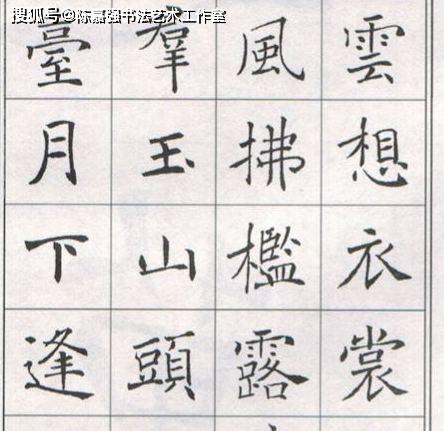 搜狐号@陈嘉强书法艺术工作室
雲想衣裳
風拂檻露
羣玉山頭
臺月下逢